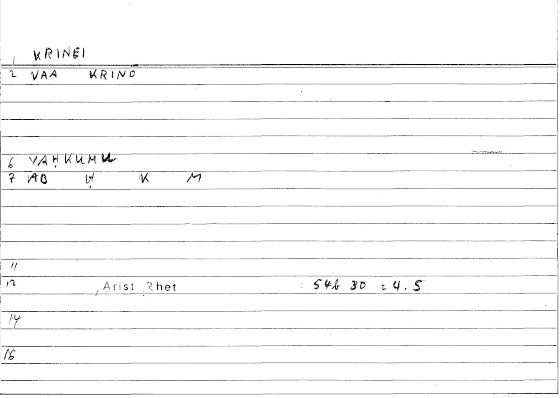 1 KRINEI
2 VAA KRINO
6 YAḤKUMU
7 AB Ḥ K M
11
12 Arist Rhet : 54b 30 : 4.5
14
16